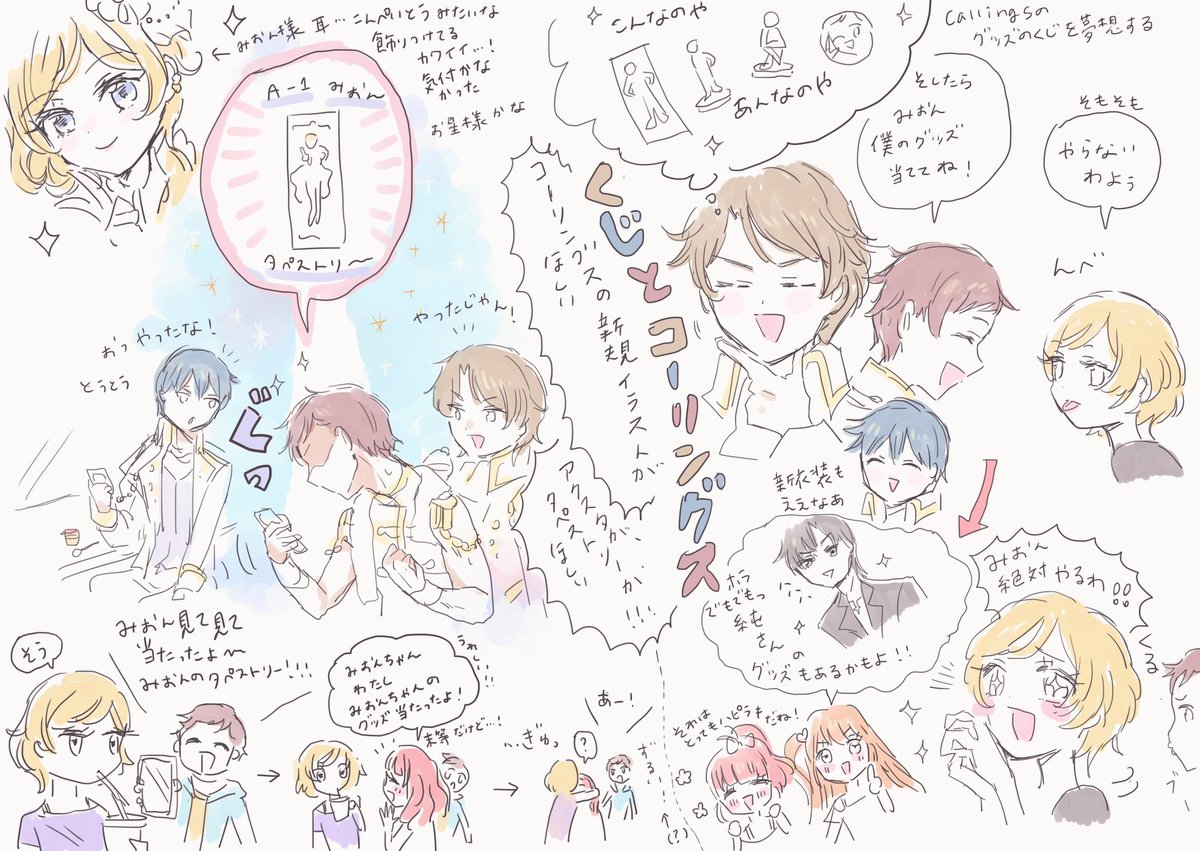 みおん様 耳…こんぺいとうみたいな
飾りつけてる
カワイイ…!
気付かな
かった
お星様かな
A-1 みおん
タペストリー〜
おっ やったな!
とうとう
ぐっ
やったじゃん!
コーリングスの新規イラストが
ほしい
アクスタが、
タペストリーが、!!!
ほしい
くじとコーリングス
こんなのや
あんなのや
Callingsの
グッズのくじを夢想する
そしたら
みおん
僕のグッズ
当ててね!
そもそも
やらない
わよぅ
んべ
新衣装も
ええなあ
ホラ
でもでもっ
純
さん
の
グッズもあるかもよ!!
みおん
絶対やるわ!!
くる
それは
とってもハピラキだね!
(?)
みおん見て見て
当たったよ〜
みおんのタペストリー!!!
そう
みおんちゃん
わたし
みおんちゃんの
グッズ当たったよ!
末等だけど…!
うれしい…!!
…ぎゅっ
?
あー!
ずるい…